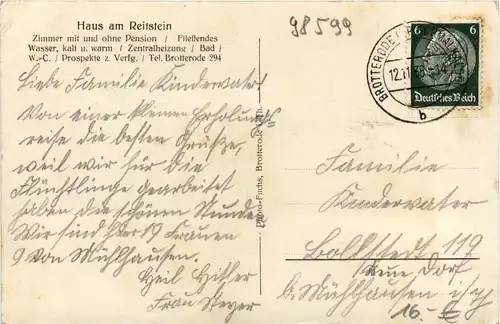 Haus am Reitstein
Zimmer mit und ohne Pension / Fließendes
Wasser, kalt u. warm / Zentralheizung / Bad /
W.-C. / Prospekte z. Verfg. / Tel. Brotterode 294
98599
6 6
Deutsches Reich
BROTTERODE
12.11.38
b
Liebe Familie Kindervater!
Von einer kleinen Erholungs
reise die besten Grüße,
weil wir für die
Flüchtlinge gearbeitet
haben die schönen Stunden
Wir sind hier 19 Frauen
9 von Mühlhausen.
Heil Hitler
Frau
Photo-Fuchs, Brotterode
Familie
Kindervater
Bollstedt 119
Neue Dorf
b. Mühlhausen i/Th
16.-€